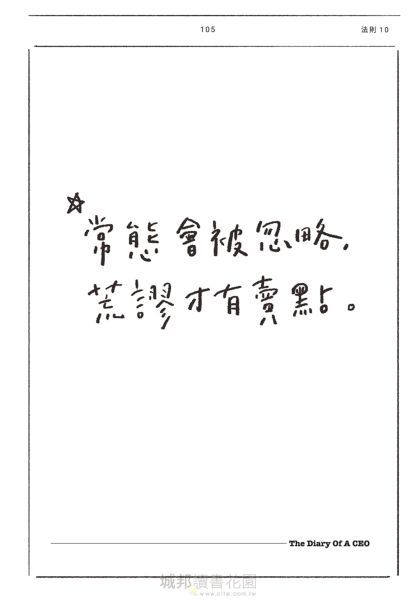 105
法則 10
☆常態會被忽略,
荒謬才有賣點。
The Diary Of A CEO
城邦讀書花園
www.cite.com.tw